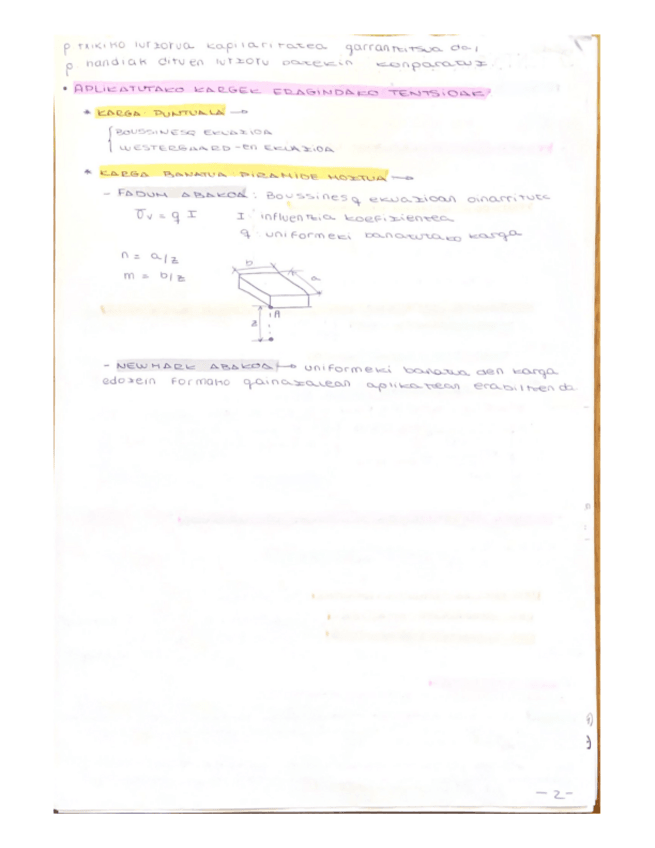 ρ txikiko lurzorua kapilaritatea garrantzitsua da,
ρ handiak dituen lurzoru batekin konparatuz.
• APLIKATUTAKO KARGEK ERAGINDAKO TENTSIOAK
* KARGA PUNTUALA →
BOUSSINESQ EKUAZIOA
WESTERGAARD-en EKUAZIOA
* KARGA BANATUA PIRAMIDE MOZTUA →
- FADUM ABAKOA: Boussinesq ekuazioan oinarrituta
σv = q I I: influentzia koefizientea
q: uniformeki banaturako karga
n = a/z
m = b/z
b
a
A
z
- NEWMARK ABAKOA → uniformeki banatua den karga
edozein formako gainazalean aplikatzean erabiltzen da
- 2 -